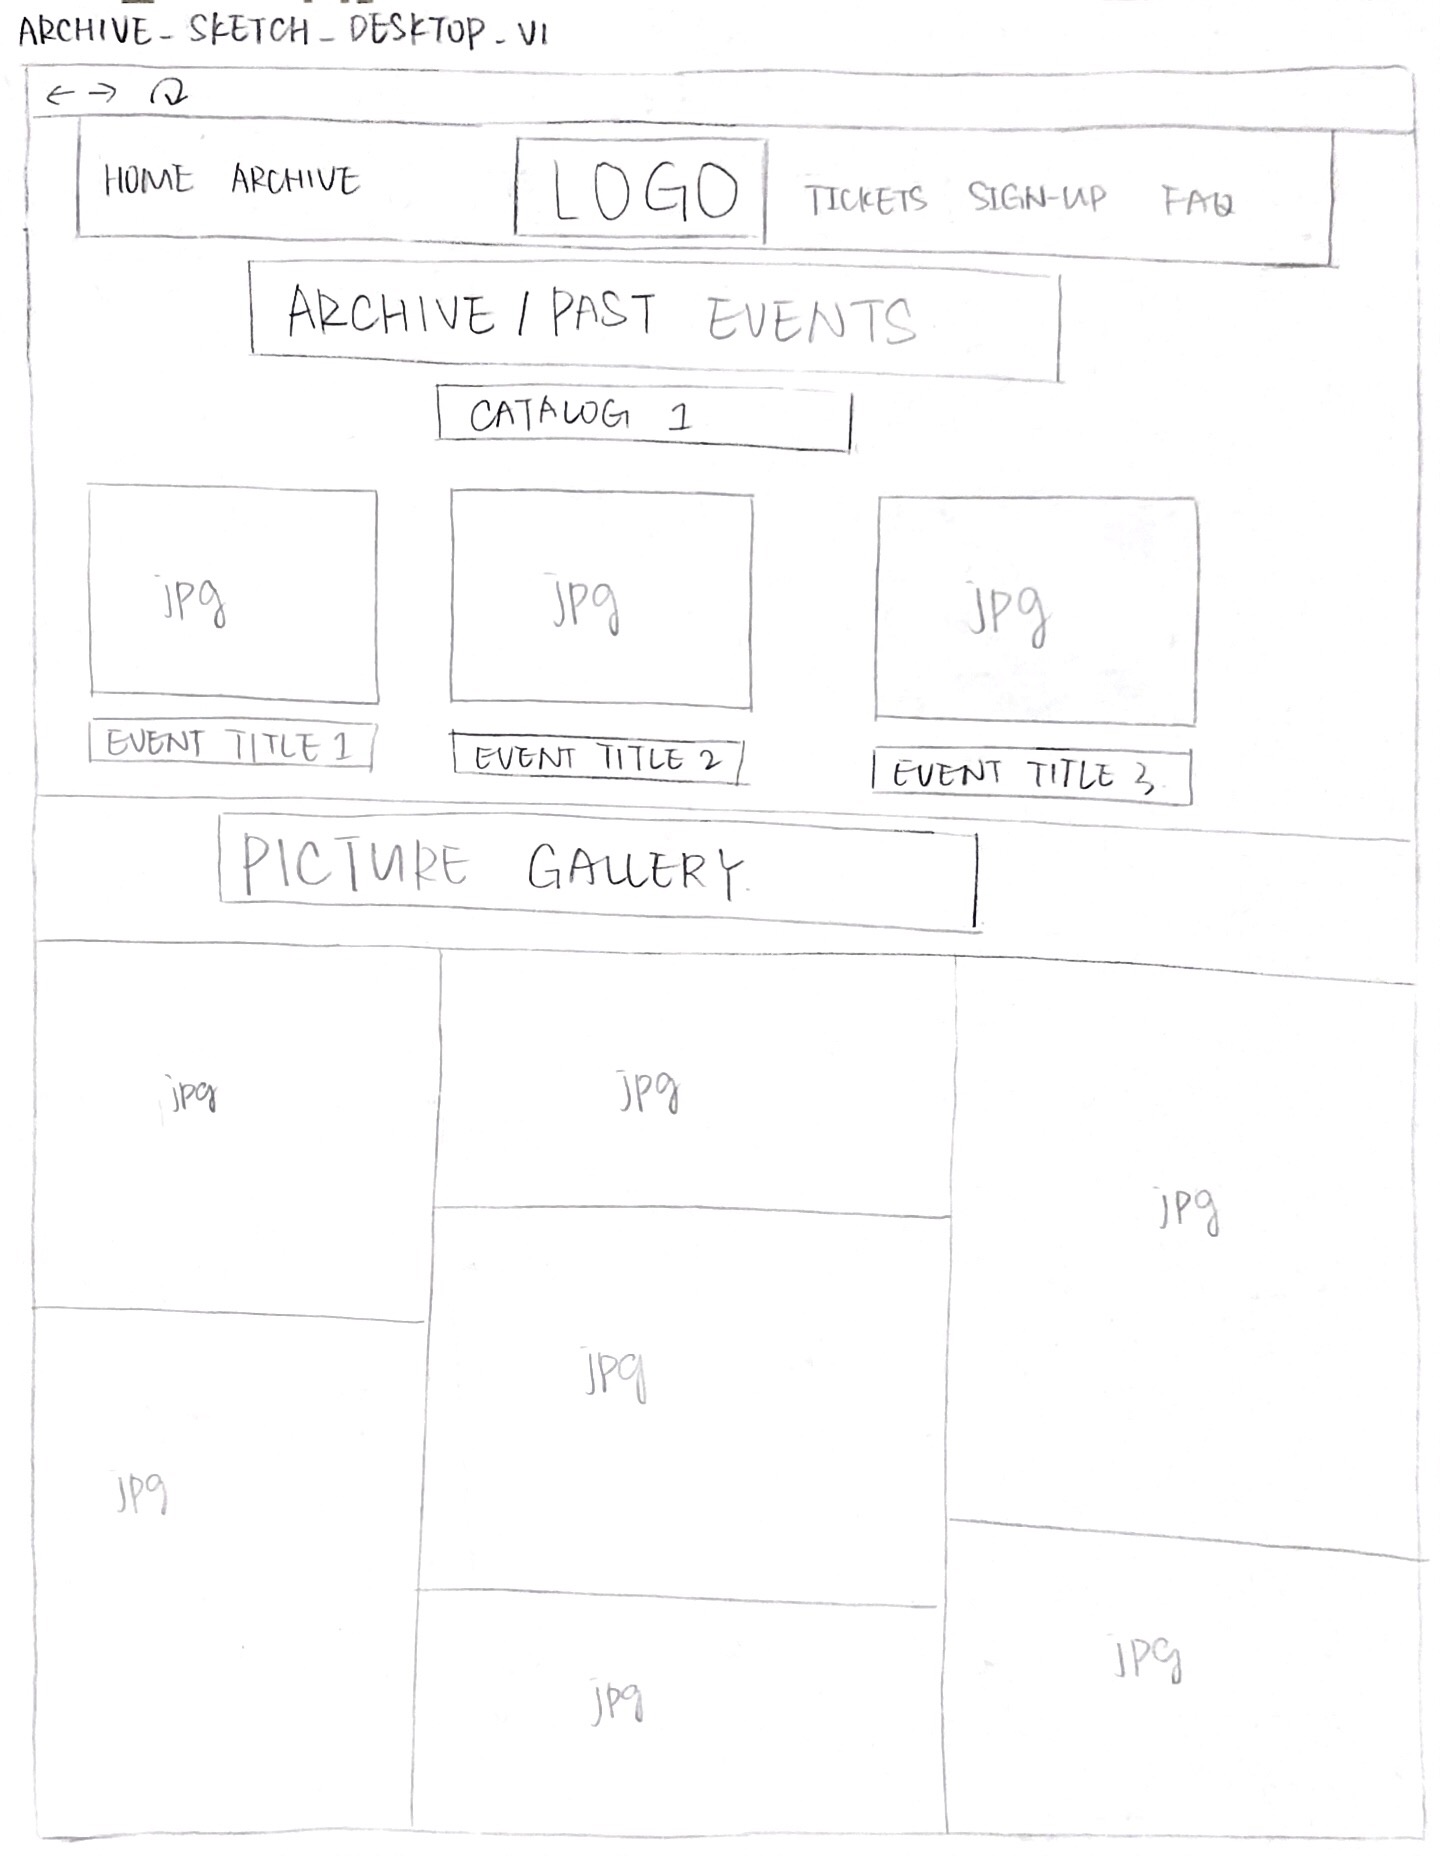 ARCHIVE_SKETCH_DESKTOP_V1
HOME ARCHIVE LOGO TICKETS SIGN-UP FAQ
ARCHIVE / PAST EVENTS
CATALOG 1
jpg jpg jpg
EVENT TITLE 1 EVENT TITLE 2 EVENT TITLE 3
PICTURE GALLERY
jpg jpg
jpg
jpg
jpg
jpg
jpg